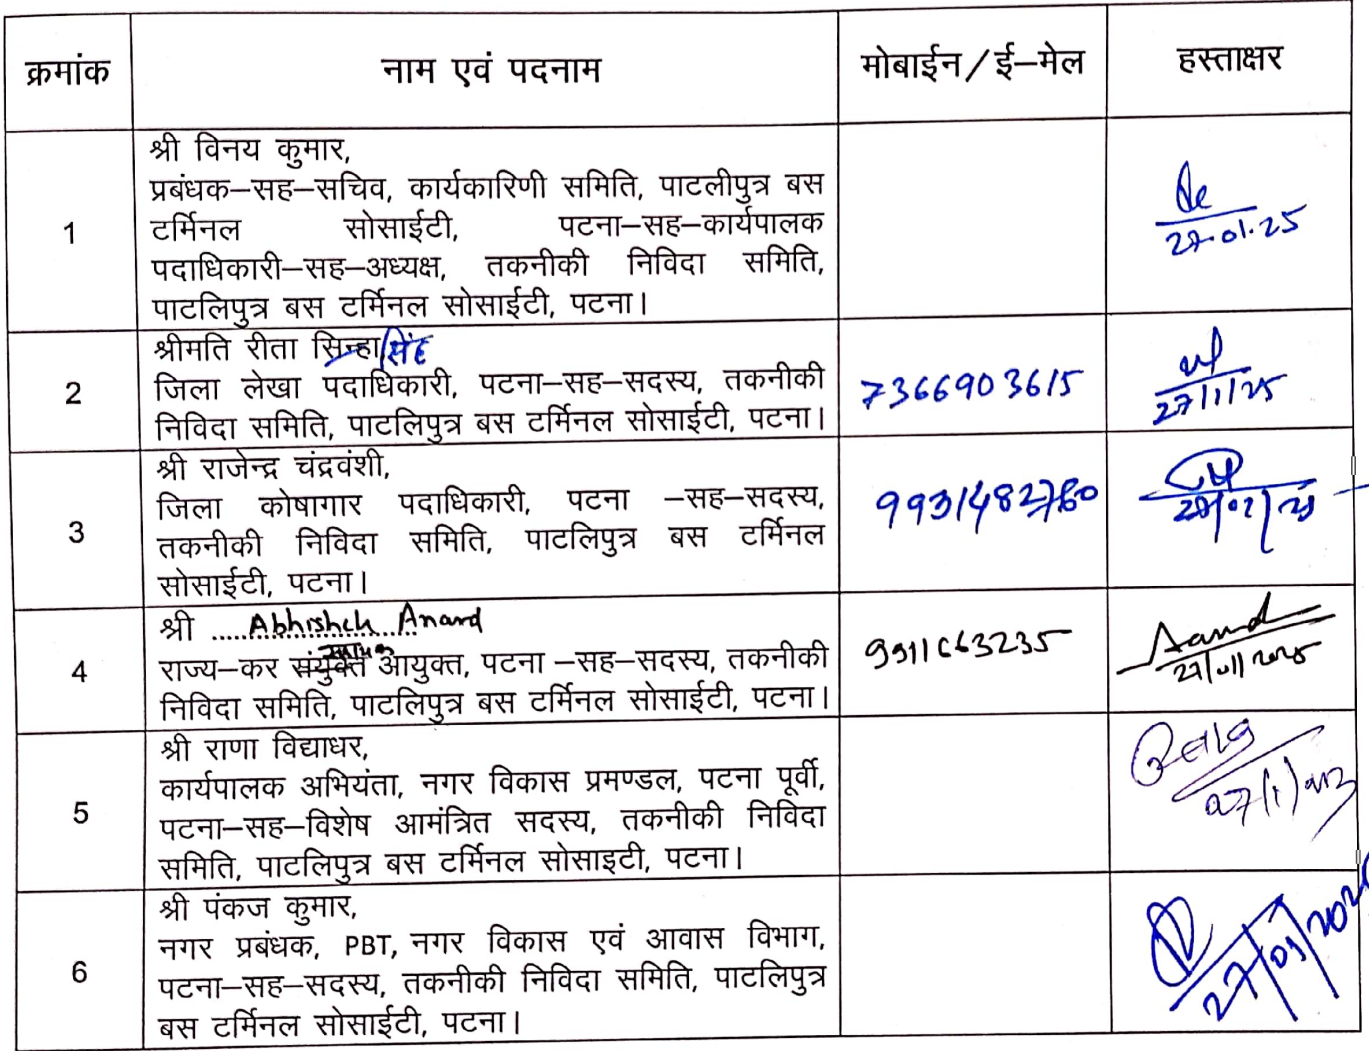 क्रमांक नाम एवं पदनाम मोबाईन/ई–मेल हस्ताक्षर
1
श्री विनय कुमार,
प्रबंधक–सह–सचिव, कार्यकारिणी समिति, पाटलीपुत्र बस
टर्मिनल सोसाईटी, पटना–सह–कार्यपालक
पदाधिकारी–सह–अध्यक्ष, तकनीकी निविदा समिति,
पाटलिपुत्र बस टर्मिनल सोसाईटी, पटना।
27.01.25
2
श्रीमति रीता सिन्हा/सिंह
जिला लेखा पदाधिकारी, पटना–सह–सदस्य, तकनीकी
निविदा समिति, पाटलिपुत्र बस टर्मिनल सोसाईटी, पटना।
7366903615
27/1/25
3
श्री राजेन्द्र चंद्रवंशी,
जिला कोषागार पदाधिकारी, पटना –सह–सदस्य,
तकनीकी निविदा समिति, पाटलिपुत्र बस टर्मिनल
सोसाईटी, पटना।
4
श्री ......Abhishek Anand
राज्य–कर संयुक्त आयुक्त, पटना –सह–सदस्य, तकनीकी
निविदा समिति, पाटलिपुत्र बस टर्मिनल सोसाईटी, पटना।
9911663235
Aand
27/01/2025
5
श्री राणा विद्याधर,
कार्यपालक अभियंता, नगर विकास प्रमण्डल, पटना पूर्वी,
पटना–सह–विशेष आमंत्रित सदस्य, तकनीकी निविदा
समिति, पाटलिपुत्र बस टर्मिनल सोसाइटी, पटना।
6
श्री पंकज कुमार,
नगर प्रबंधक, PBT, नगर विकास एवं आवास विभाग,
पटना–सह–सदस्य, तकनीकी निविदा समिति, पाटलिपुत्र
बस टर्मिनल सोसाईटी, पटना।